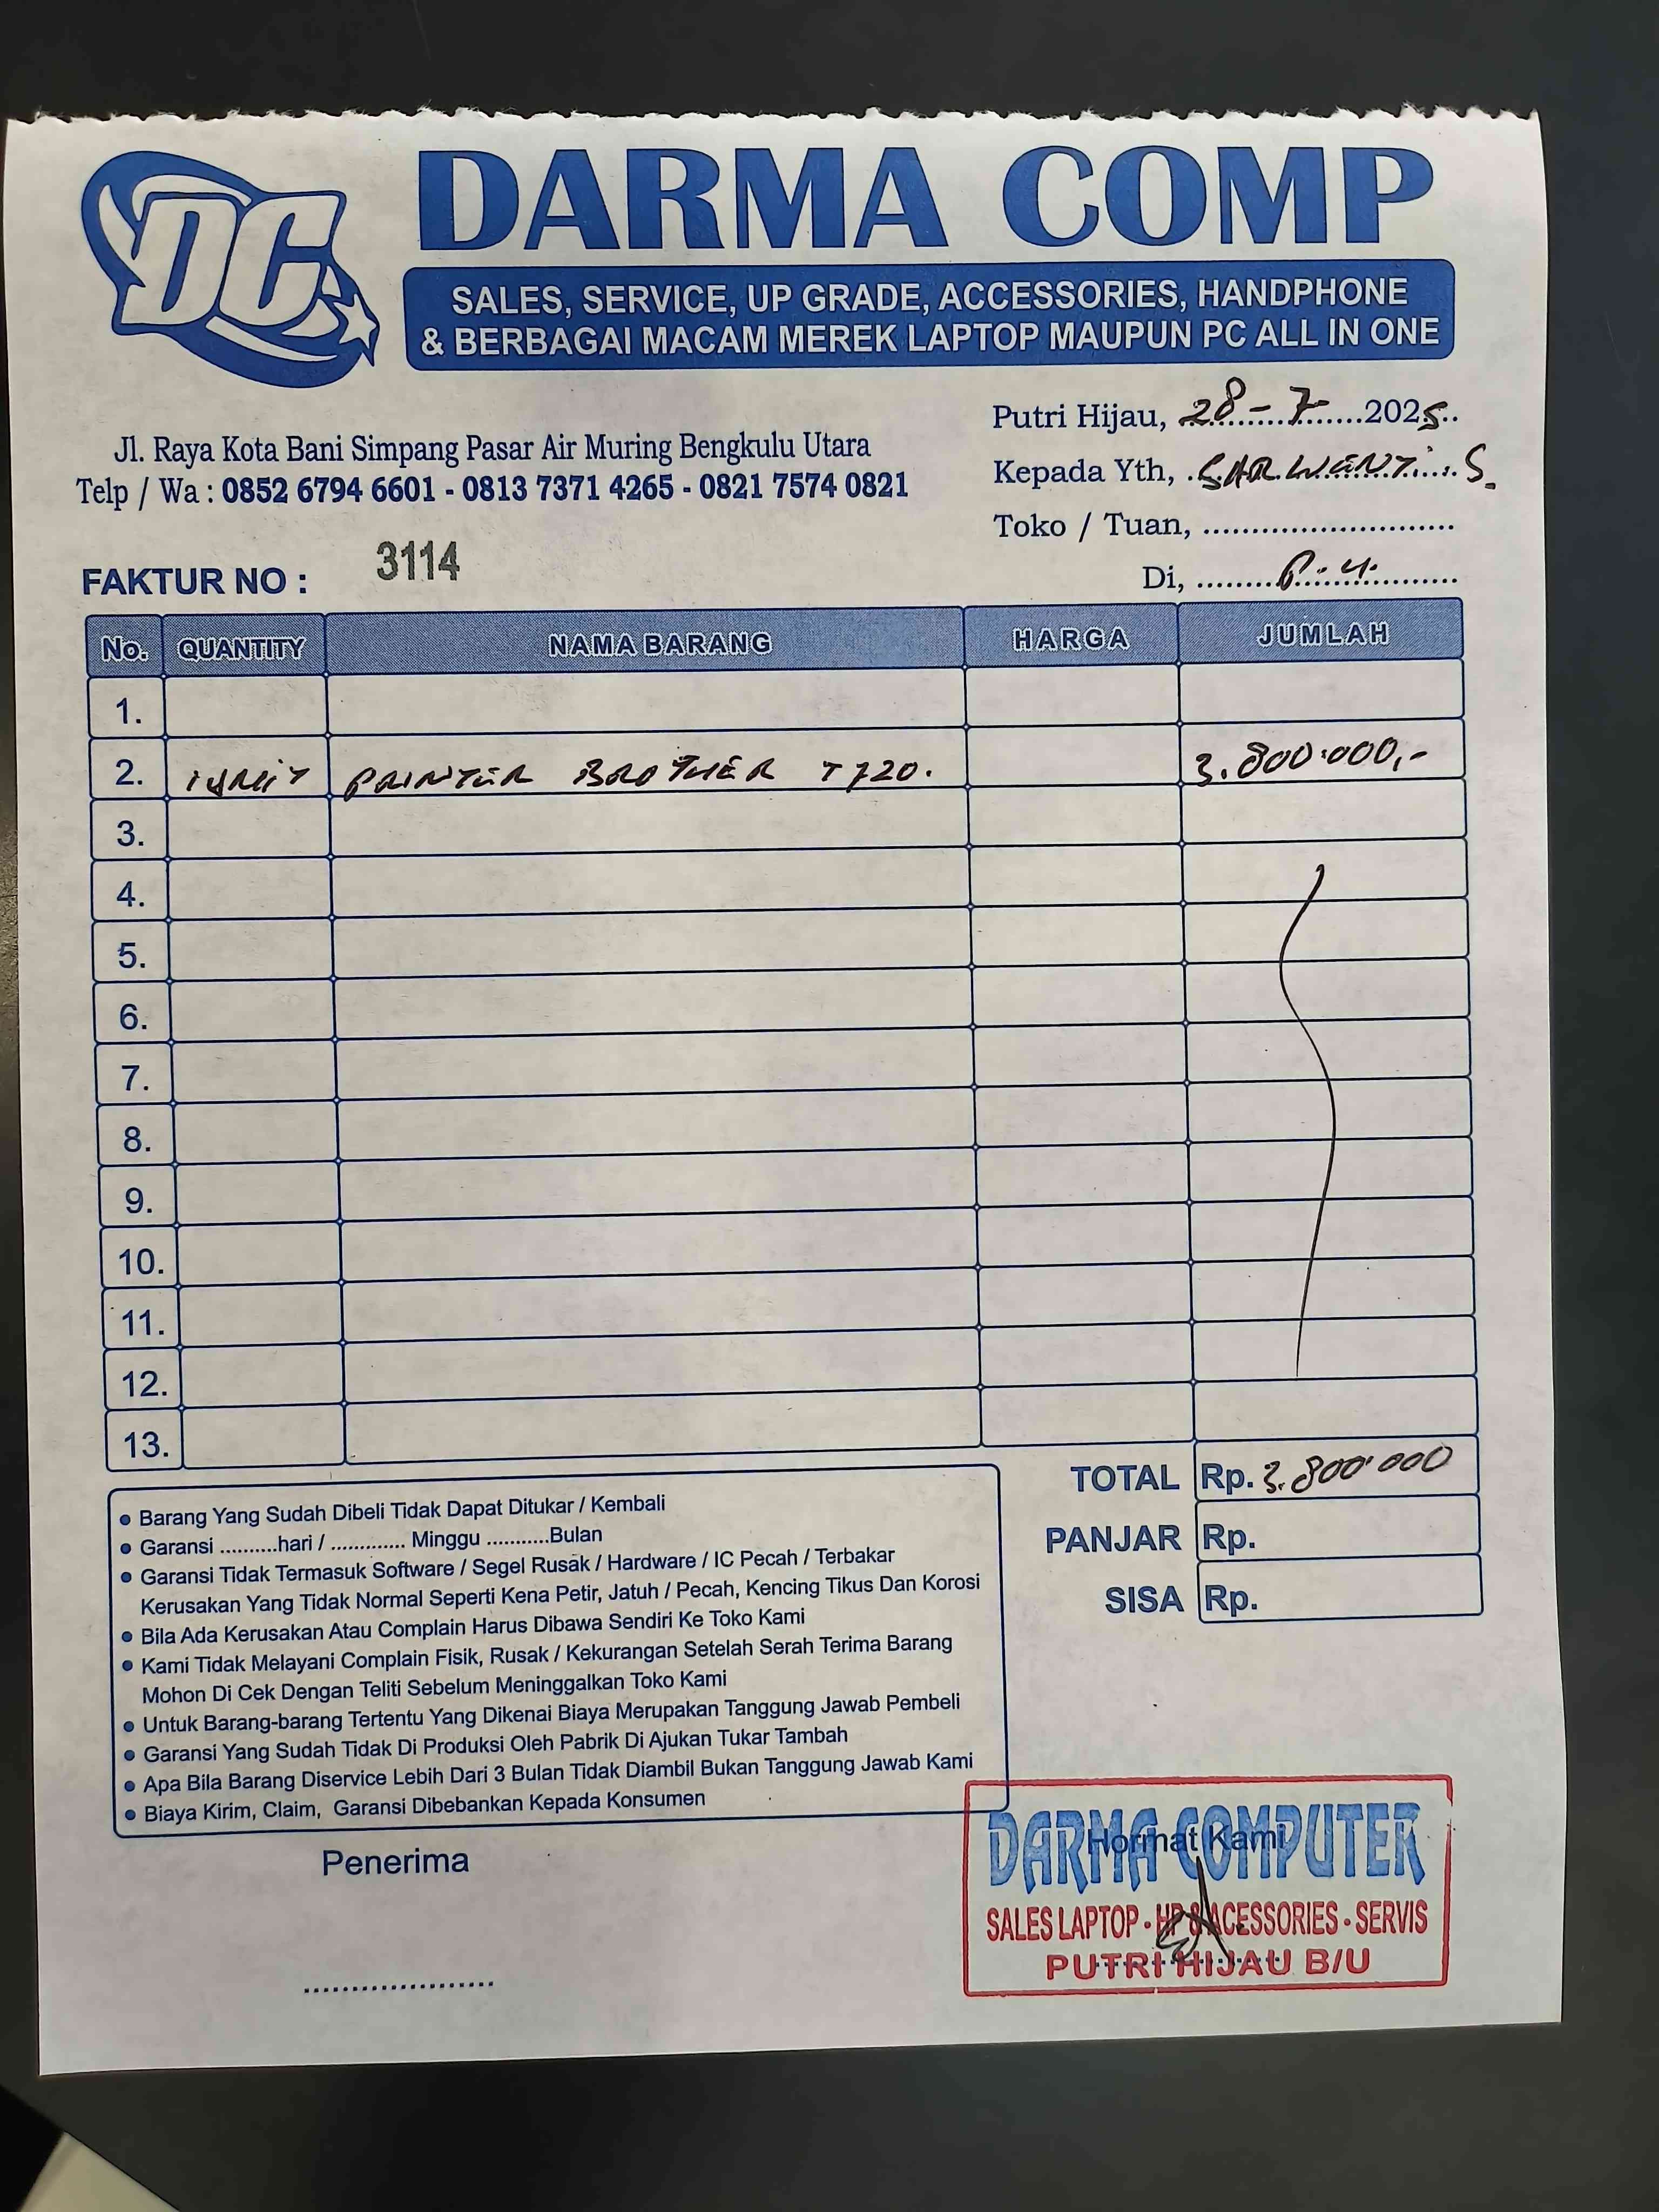 DC
DARMA COMP
SALES, SERVICE, UP GRADE, ACCESSORIES, HANDPHONE
& BERBAGAI MACAM MEREK LAPTOP MAUPUN PC ALL IN ONE
Jl. Raya Kota Bani Simpang Pasar Air Muring Bengkulu Utara
Telp / Wa : 0852 6794 6601 - 0813 7371 4265 - 0821 7574 0821
Putri Hijau, 28 - 7 2025
Kepada Yth, SARWANTI S.
Toko / Tuan, ...........................
Di, P.H.
FAKTUR NO : 3114
No. QUANTITY NAMA BARANG HARGA JUMLAH
1.
2. 1 UNIT PRINTER BROTHER T720. 3.800.000,-
3.
4.
5.
6.
7.
8.
9.
10.
11.
12.
13.
TOTAL Rp. 3.800.000
PANJAR Rp.
SISA Rp.
• Barang Yang Sudah Dibeli Tidak Dapat Ditukar / Kembali
• Garansi ..........hari / ............. Minggu ...........Bulan
• Garansi Tidak Termasuk Software / Segel Rusak / Hardware / IC Pecah / Terbakar
Kerusakan Yang Tidak Normal Seperti Kena Petir, Jatuh / Pecah, Kencing Tikus Dan Korosi
• Bila Ada Kerusakan Atau Complain Harus Dibawa Sendiri Ke Toko Kami
• Kami Tidak Melayani Complain Fisik, Rusak / Kekurangan Setelah Serah Terima Barang
Mohon Di Cek Dengan Teliti Sebelum Meninggalkan Toko Kami
• Untuk Barang-barang Tertentu Yang Dikenai Biaya Merupakan Tanggung Jawab Pembeli
• Garansi Yang Sudah Tidak Di Produksi Oleh Pabrik Di Ajukan Tukar Tambah
• Apa Bila Barang Diservice Lebih Dari 3 Bulan Tidak Diambil Bukan Tanggung Jawab Kami
• Biaya Kirim, Claim, Garansi Dibebankan Kepada Konsumen
Penerima
Hormat Kami
DARMA COMPUTER
SALES LAPTOP - HP & ACESSORIES - SERVIS
PUTRI HIJAU B/U